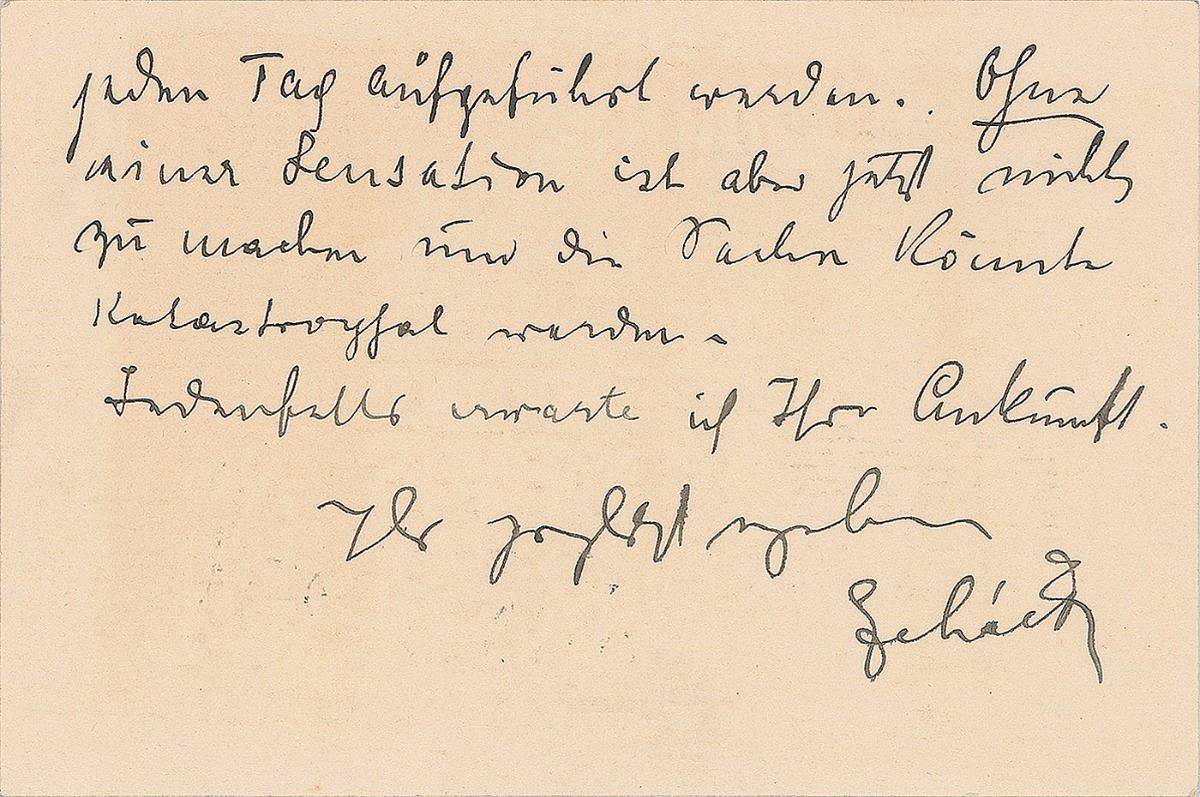 jeden Tag aufgeführt werden. Ohne
einer Sensation ist aber jetzt nichts
zu machen und die Sache könnte
katastrophal werden.
Jedenfalls erwarte ich Ihre Ankunft.
Ihr